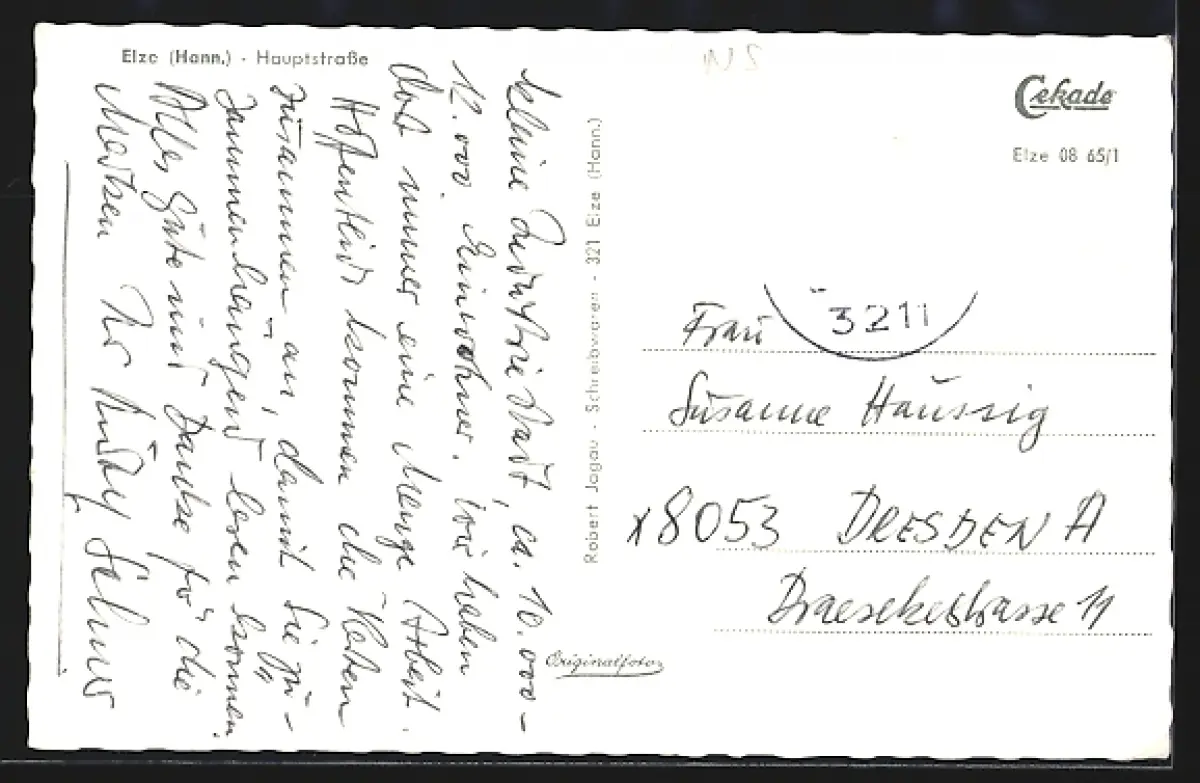 Elze (Hann.) - Hauptstraße
kleine Industriestadt, ca. 10.000-
12.000 Einwohner. Wir haben
dort immer eine Menge Arbeit.
Hoffentlich kommen die Karten
zusammen an, damit Sie zu-
sammenhängend lesen können.
Alles Gute und Danke für die
Marken Ihr
Robert Jagau - Schreibwaren - 321 Elze (Hann.)
Originalfoto
Cekade
Elze 08 65/1
3211
Frau
Susanne Haussig
x8053 DRESDEN A
Draesekestrasse 11